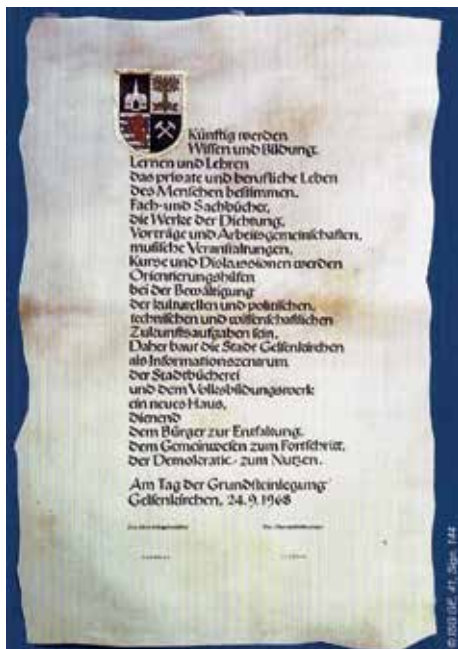 Künftig werden
Wissen und Bildung,
Lernen und Lehren
das private und berufliche Leben
des Menschen bestimmen.
Fach- und Sachbücher,
die Werke der Dichtung,
Vorträge und Arbeitsgemeinschaften,
musische Veranstaltungen,
Kurse und Diskussionen werden
Orientierungshilfen
bei der Bewältigung
der kulturellen und politischen,
technischen und wissenschaftlichen
Zukunftsaufgaben sein.
Daher baut die Stadt Gelsenkirchen
als Informationszentrum
der Stadtbücherei
und dem Volksbildungswerk
ein neues Haus,
dienend
dem Bürger zur Entfaltung,
dem Gemeinwesen zum Fortschritt,
der Demokratie zum Nutzen.
Am Tag der Grundsteinlegung
Gelsenkirchen, 24.9.1968
© ISG GE, 41, Sign. 144